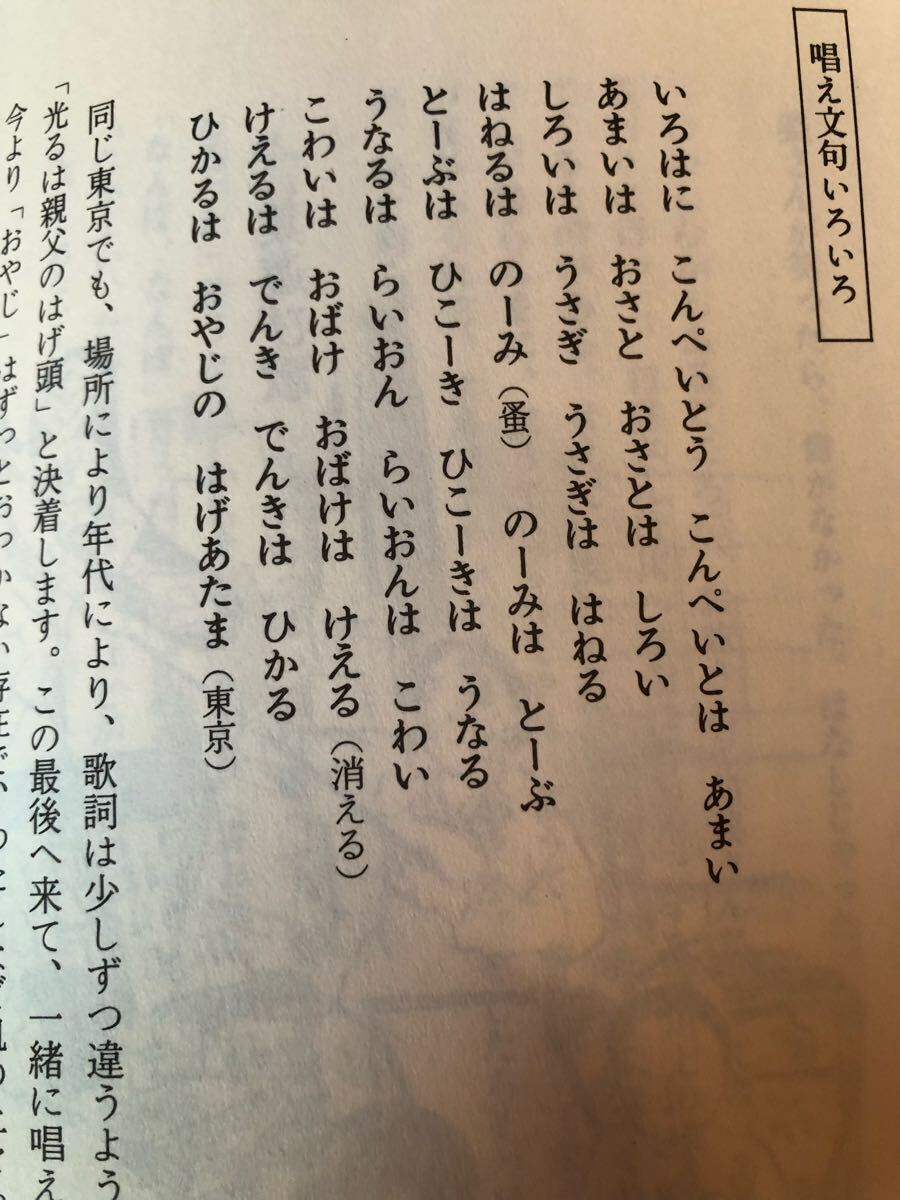 唱え文句いろいろ
いろはに　こんぺいとう　こんぺいとは　あまい
あまいは　おさと　おさとは　しろい
しろいは　うさぎ　うさぎは　はねる
はねるは　のーみ（蚤）　のーみは　とーぶ
とーぶは　ひこーき　ひこーきは　うなる
うなるは　らいおん　らいおんは　こわい
こわいは　おばけ　おばけは　けえる（消える）
けえるは　でんき　でんきは　ひかる
ひかるは　おやじの　はげあたま（東京）
同じ東京でも、場所により年代により、歌詞は少しずつ違うよう
「光るは親父のはげ頭」と決着します。この最後へ来て、一緒に唱え
今より「おやじ」はずっとおっかない存在で